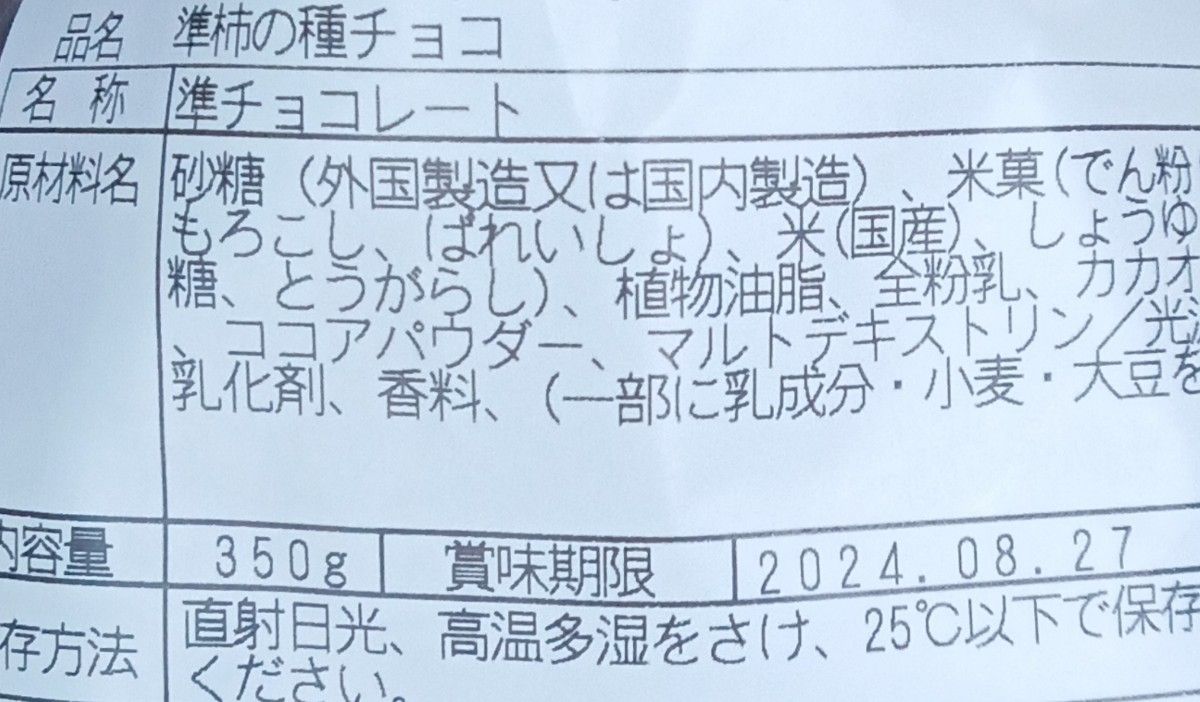 品名 準柿の種チョコ
名称 準チョコレート
原材料名 砂糖（外国製造又は国内製造）、米菓（でん粉
もろこし、ばれいしょ）、米（国産）、しょうゆ
糖、とうがらし）、植物油脂、全粉乳、カカオ
、ココアパウダー、マルトデキストリン／光
乳化剤、香料、（一部に乳成分・小麦・大豆を
内容量 350g 賞味期限 2024.08.27
存方法 直射日光、高温多湿をさけ、25℃以下で保存
ください。